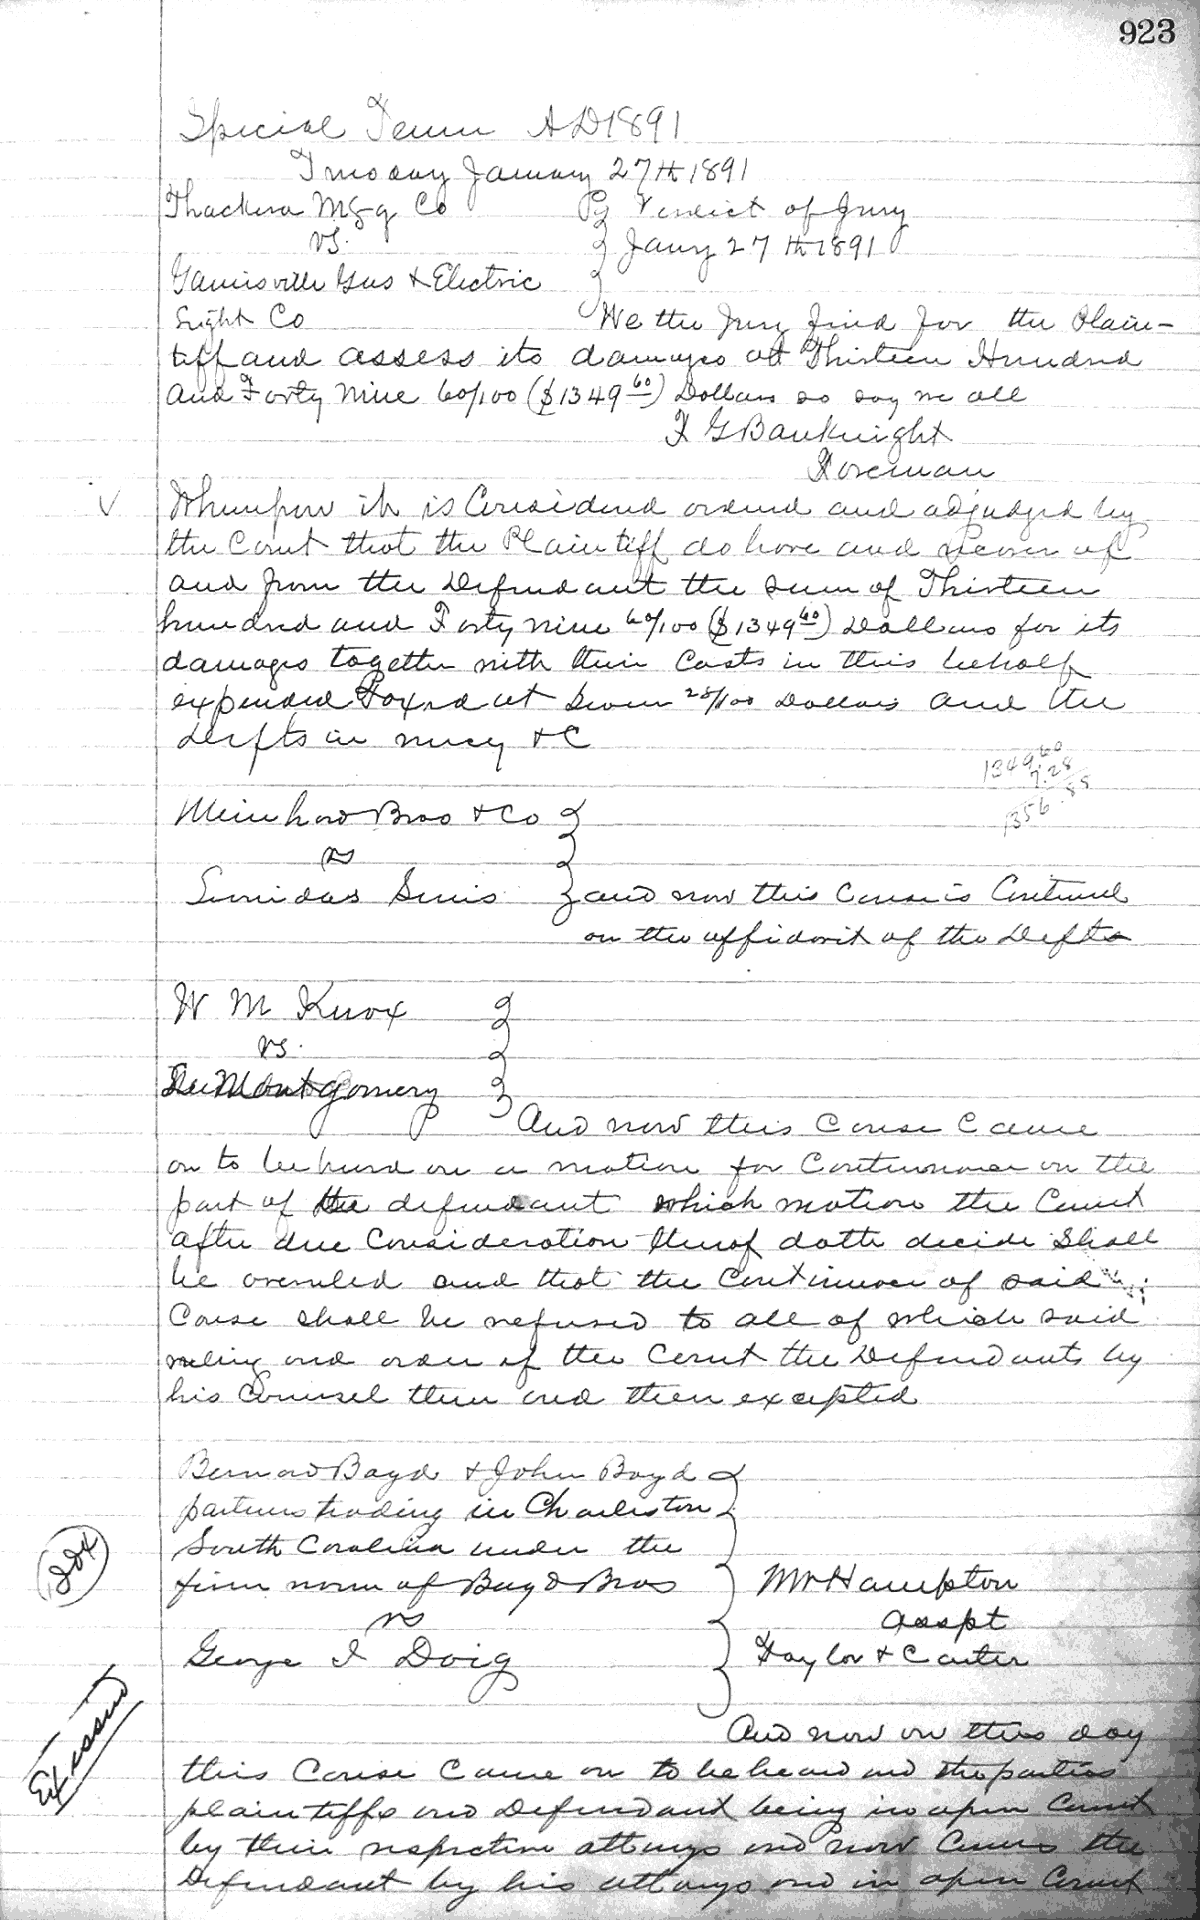 923
Special Term AD 1891
Tuesday January 27th 1891
Thackera Mfg Co Verdict of Jury
vs. Jany 27th 1891
Gainesville Gas & Electric
Light Co We the Jury find for the Plain-
tiff and assess its damages at Thirteen Hundred
and Forty Nine 60/100 ($1349 60) Dollars so say we all
F G Bauknight
Foreman
V Whereupon it is Considered ordered and adjudged by
the Court that the Plaintiff do have and recover of
and from the Defendant the sum of Thirteen
hundred and Forty nine 60/100 ($1349 60) Dollars for its
damages together with their Costs in this behalf
expended Taxed at Seven 28/100 Dollars and the
Defts in mercy &C
1349 60
7.28
1356.88
Meinhard Bros & Co
vs
Lenidas and now this Cause is Continued
on the affidavit of the Defts
W M Knox
vs.
Montgomery
And now this Cause Came
on to be heard on a motion for Continuance on the
part of the defendant which motion the Court
after due Consideration thereof doth decide Shall
be overruled and that the Continuance of said
Cause shall be refused to all of which said
ruling and order of the Court the Defendants by
his Counsel then and there excepted
Bernard Boyd & John Boyd
partners trading in Charleston
South Carolina under the
firm name of Boyd Bros Mr Hampton
vs Asspt
George I Doig Taylor & Carter
Ex issued
And now on this day
this Cause Came on to be heard and the parties
plaintiffs and Defendant being in open Court
by their respective attorneys and now Comes the
Defendant by his attorneys and in open Court